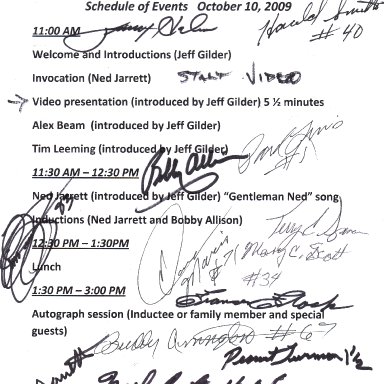 Schedule of Events October 10, 2009
11:00 AM
Harold Smith
#40
Welcome and Introductions (Jeff Gilder)
Invocation (Ned Jarrett) START VIDEO
Video presentation (introduced by Jeff Gilder) 5 ½ minutes
Alex Beam (introduced by Jeff Gilder)
Tim Leeming (introduced by Jeff Gilder)
11:30 AM – 12:30 PM
Bobby Allison
Ned Jarrett (introduced by Jeff Gilder) “Gentleman Ned” song
Inductions (Ned Jarrett and Bobby Allison)
12:30 PM – 1:30PM
Dave Marcis
#71
Mary C. Scott
#34
Lunch
1:30 PM – 3:00 PM
Autograph session (Inductee or family member and special
guests)
Buddy Arrington #67
1½